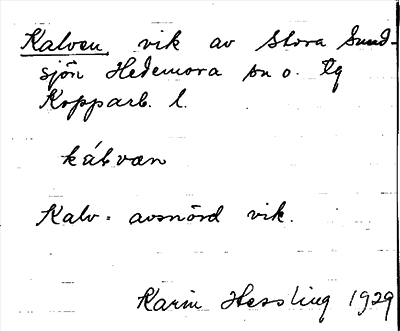 Kalven, vik av Stora Sund-
sjön Hedemora sn o. tg
Kopparb. l.
kálven
Kalv = avsnörd vik.
Karin Hessling 1929